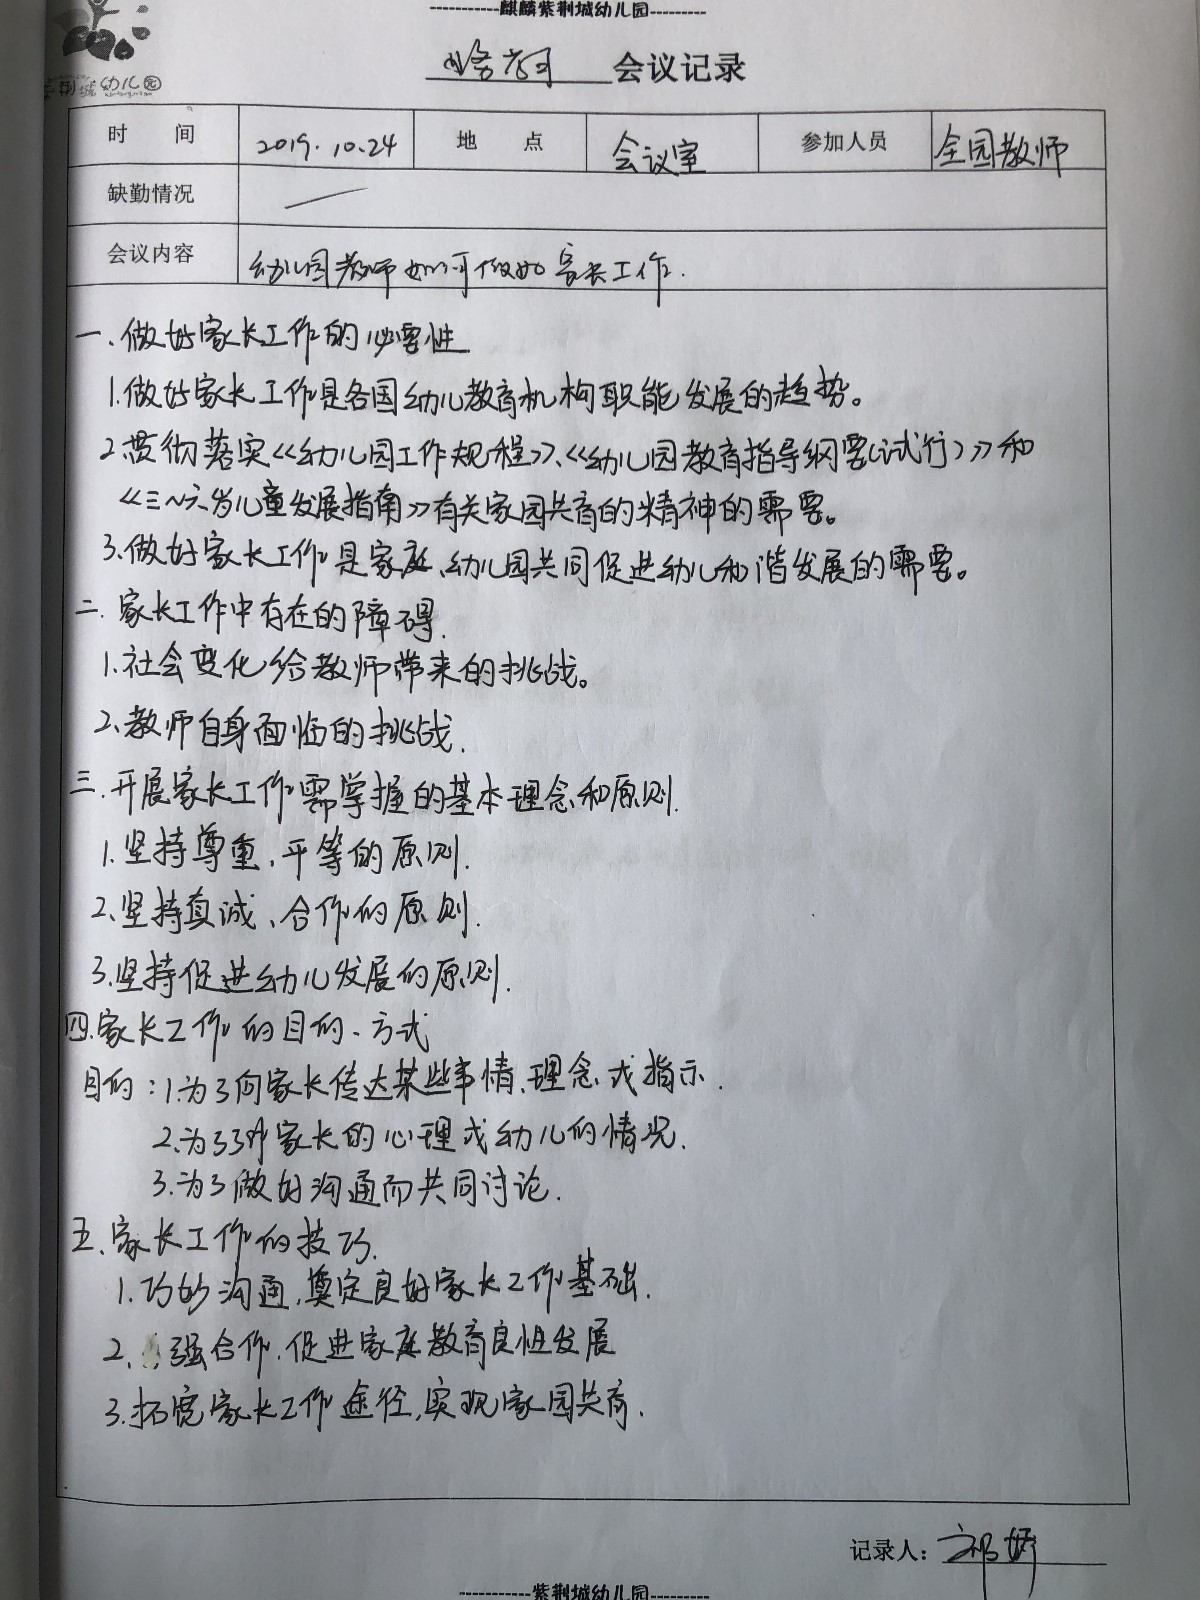 -----------麒麟紫荆城幼儿园---------
培训 会议记录
荆城幼儿园
时 间 2019.10.24 地 点 会议室 参加人员 全园教师
缺勤情况
会议内容 幼儿园教师如何做好家长工作.
一、做好家长工作的必要性
1.做好家长工作是各国幼儿教育机构职能发展的趋势。
2.贯彻落实《幼儿园工作规程》、《幼儿园教育指导纲要(试行)》和
《三~六岁儿童发展指南》有关家园共育的精神的需要。
3.做好家长工作是家庭、幼儿园共同促进幼儿和谐发展的需要。
二.家长工作中存在的障碍.
1.社会变化给教师带来的挑战。
2.教师自身面临的挑战.
三.开展家长工作需掌握的基本理念和原则.
1.坚持尊重、平等的原则.
2.坚持真诚、合作的原则.
3.坚持促进幼儿发展的原则.
四.家长工作的目的、方式
目的:1.为了向家长传达某些事情、理念或指示.
2.为了了解家长的心理或幼儿的情况.
3.为了做好沟通而共同讨论.
五、家长工作的技巧.
1.巧妙沟通,奠定良好家长工作基础.
2、强合作,促进家庭教育良性发展
3.拓宽家长工作途径,实现家园共育.
记录人:祁娇
-----------紫荆城幼儿园---------